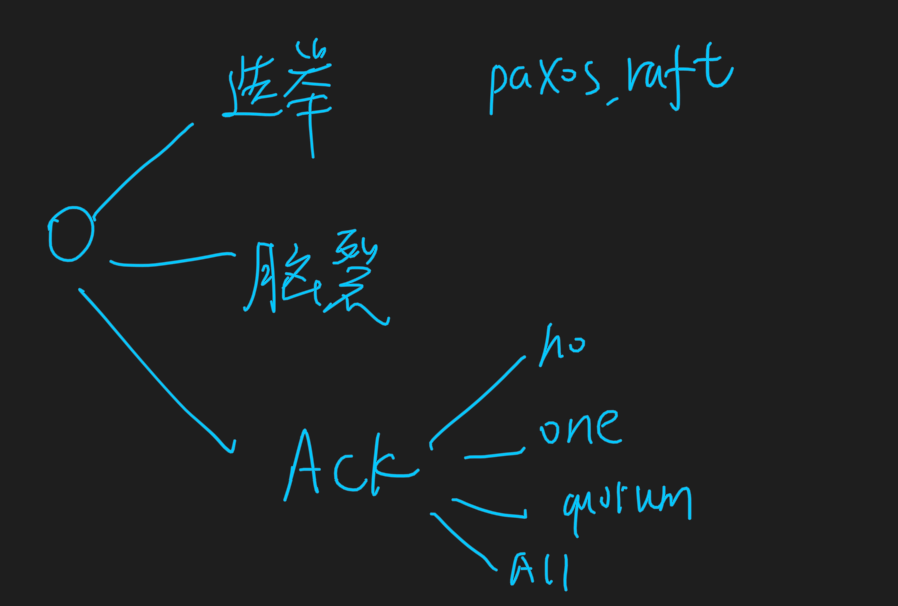 选举
paxos.raft
脑裂
Ack
no
one
quorum
All